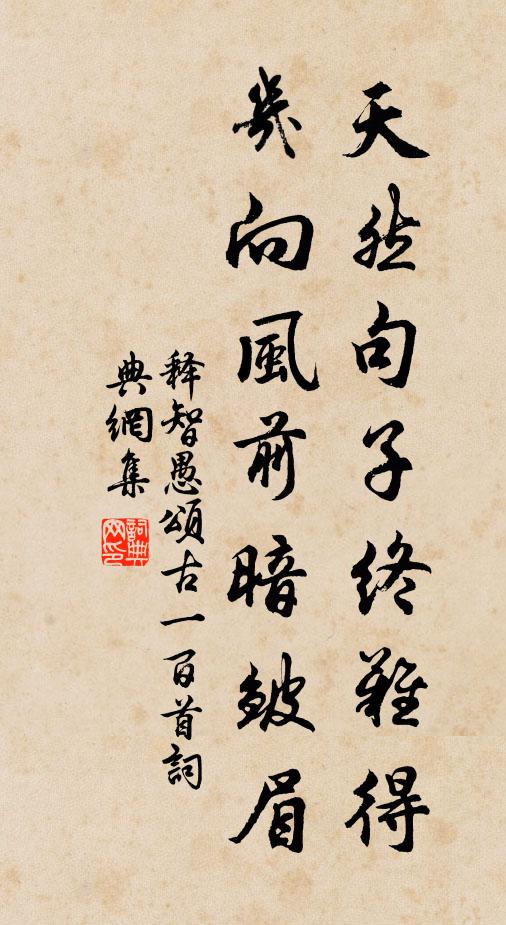 天然句子終難得
幾向風前暗皺眉
釋智愚頌古一百首詞
典網集
詞典網印